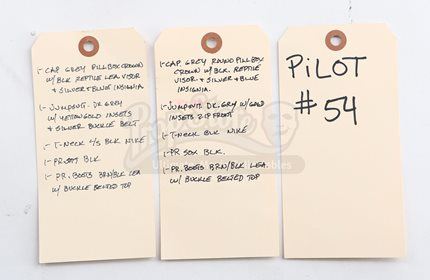 1- CAP GREY PILLBOX CROWN
W/ BLK REPTILE LEA VISOR
& SILVER & BLUE INSIGNIA
1- JUMPSUIT. DK GREY
W/ YELLOW GOLD INSETS
& SILVER BUCKLE BELT
1- T-NECK S/S BLK NIKE
1- PR SOX BLK
1- PR. BOOTS BRN/BLK LEA
W/ BUCKLE BELTED TOP
1- CAP. GREY ROUND PILLBOX
CROWN W/ BLK. REPTILE
VISOR & SILVER & BLUE
INSIGNIA.
1- JUMPSUIT. DK. GRY W/ GOLD
INSETS ZIP FRONT
1- T-NECK BLK NIKE
1- PR SOX BLK.
1- PR. BOOTS BRN/BLK LEA
W/ BUCKLE BELTED TOP
PiLOT
#54